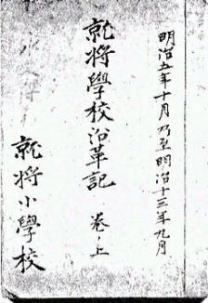 明治五年十月ヨリ至明治十三年九月
就将學校沿革記 巻之上
就将小學校